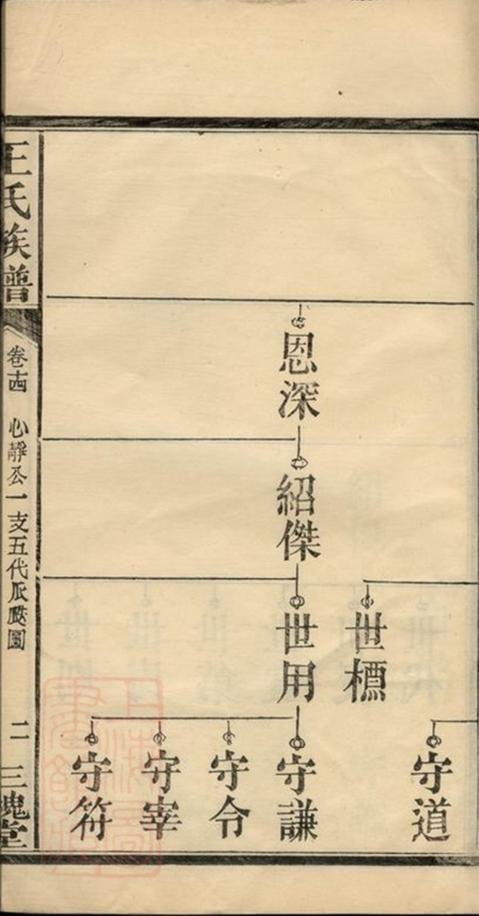 恩深
紹傑
世標
世用
守道
守謙
守令
守宰
守符
王氏族譜
卷十四
心靜公一支五代瓜瓞圖
二
三槐堂